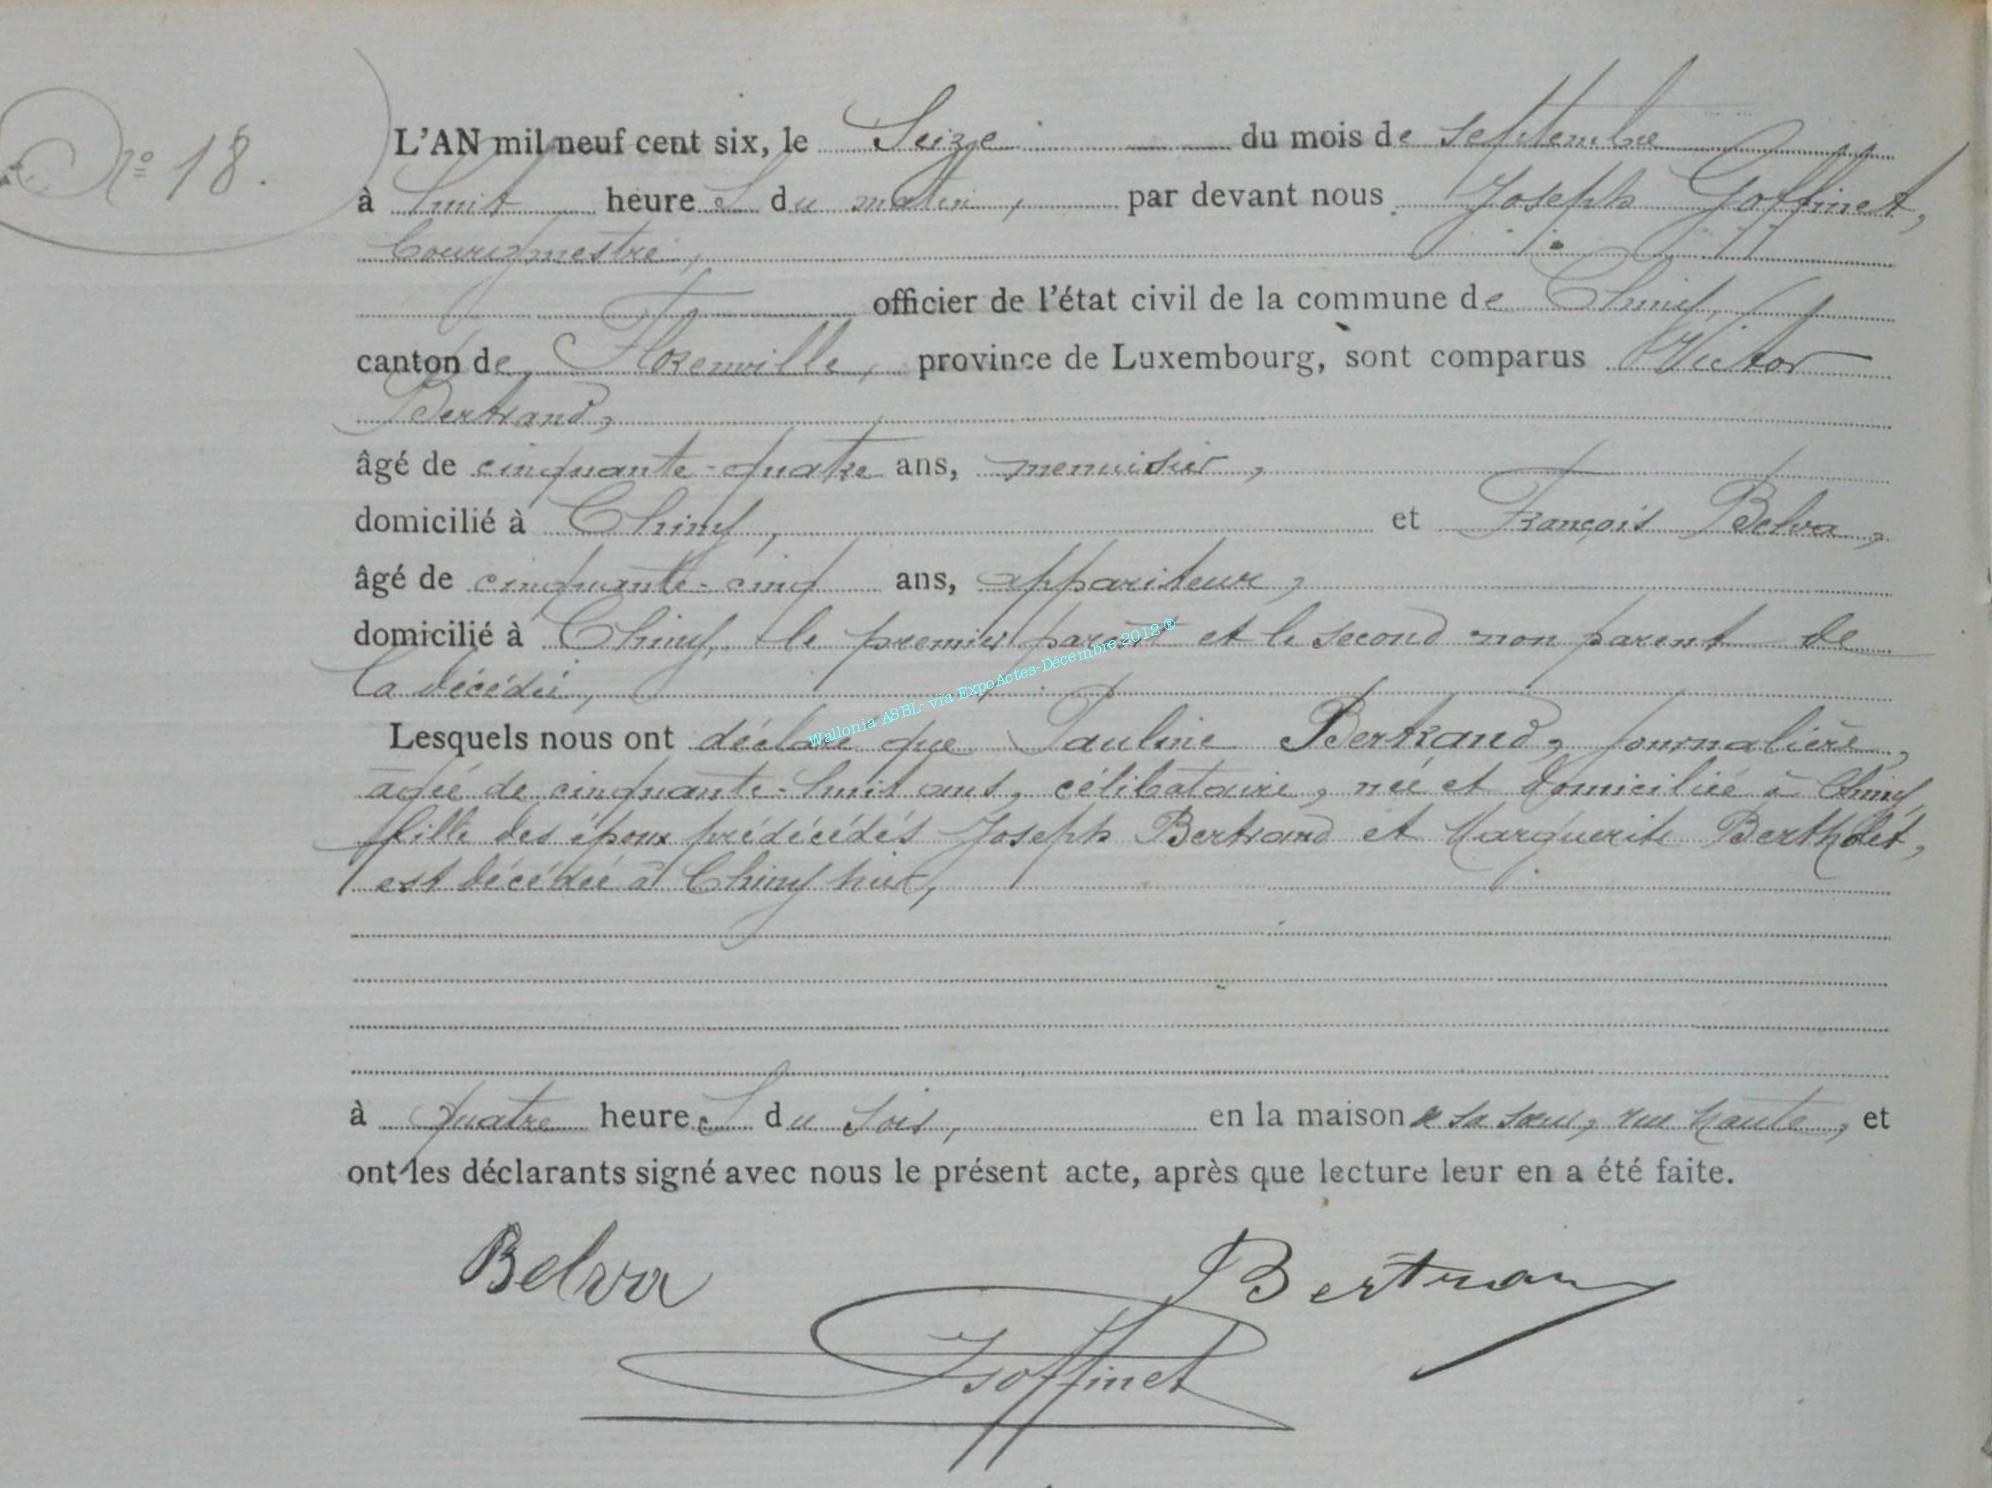 N° 18.
L'AN mil neuf cent six, le Seize du mois de septembre
à huit heures du matin, par devant nous Joseph Goffinet,
bourgmestre,
officier de l'état civil de la commune de Chiny,
canton de Florenville, province de Luxembourg, sont comparus Victor
Bertrand,
âgé de cinquante-quatre ans, menuisier,
domicilié à Chiny, et François Belva,
âgé de cinquante-cinq ans, appariteur,
domicilié à Chiny, le premier parent et le second non parent de
la décédée,
Wallonia ASBL- via ExpoActes-Décembre 2012 ®
Lesquels nous ont déclaré que Pauline Bertrand, journalière,
agée de cinquante-huit ans, célibataire, née et domiciliée à Chiny,
fille des époux prédécédés Joseph Bertrand et Marguerite Bertholet,
est décédée à Chiny hier,
à quatre heures du soir, en la maison de sa sœur, rue haute, et
ont les déclarants signé avec nous le présent acte, après que lecture leur en a été faite.
Belva Bertran
Goffinet